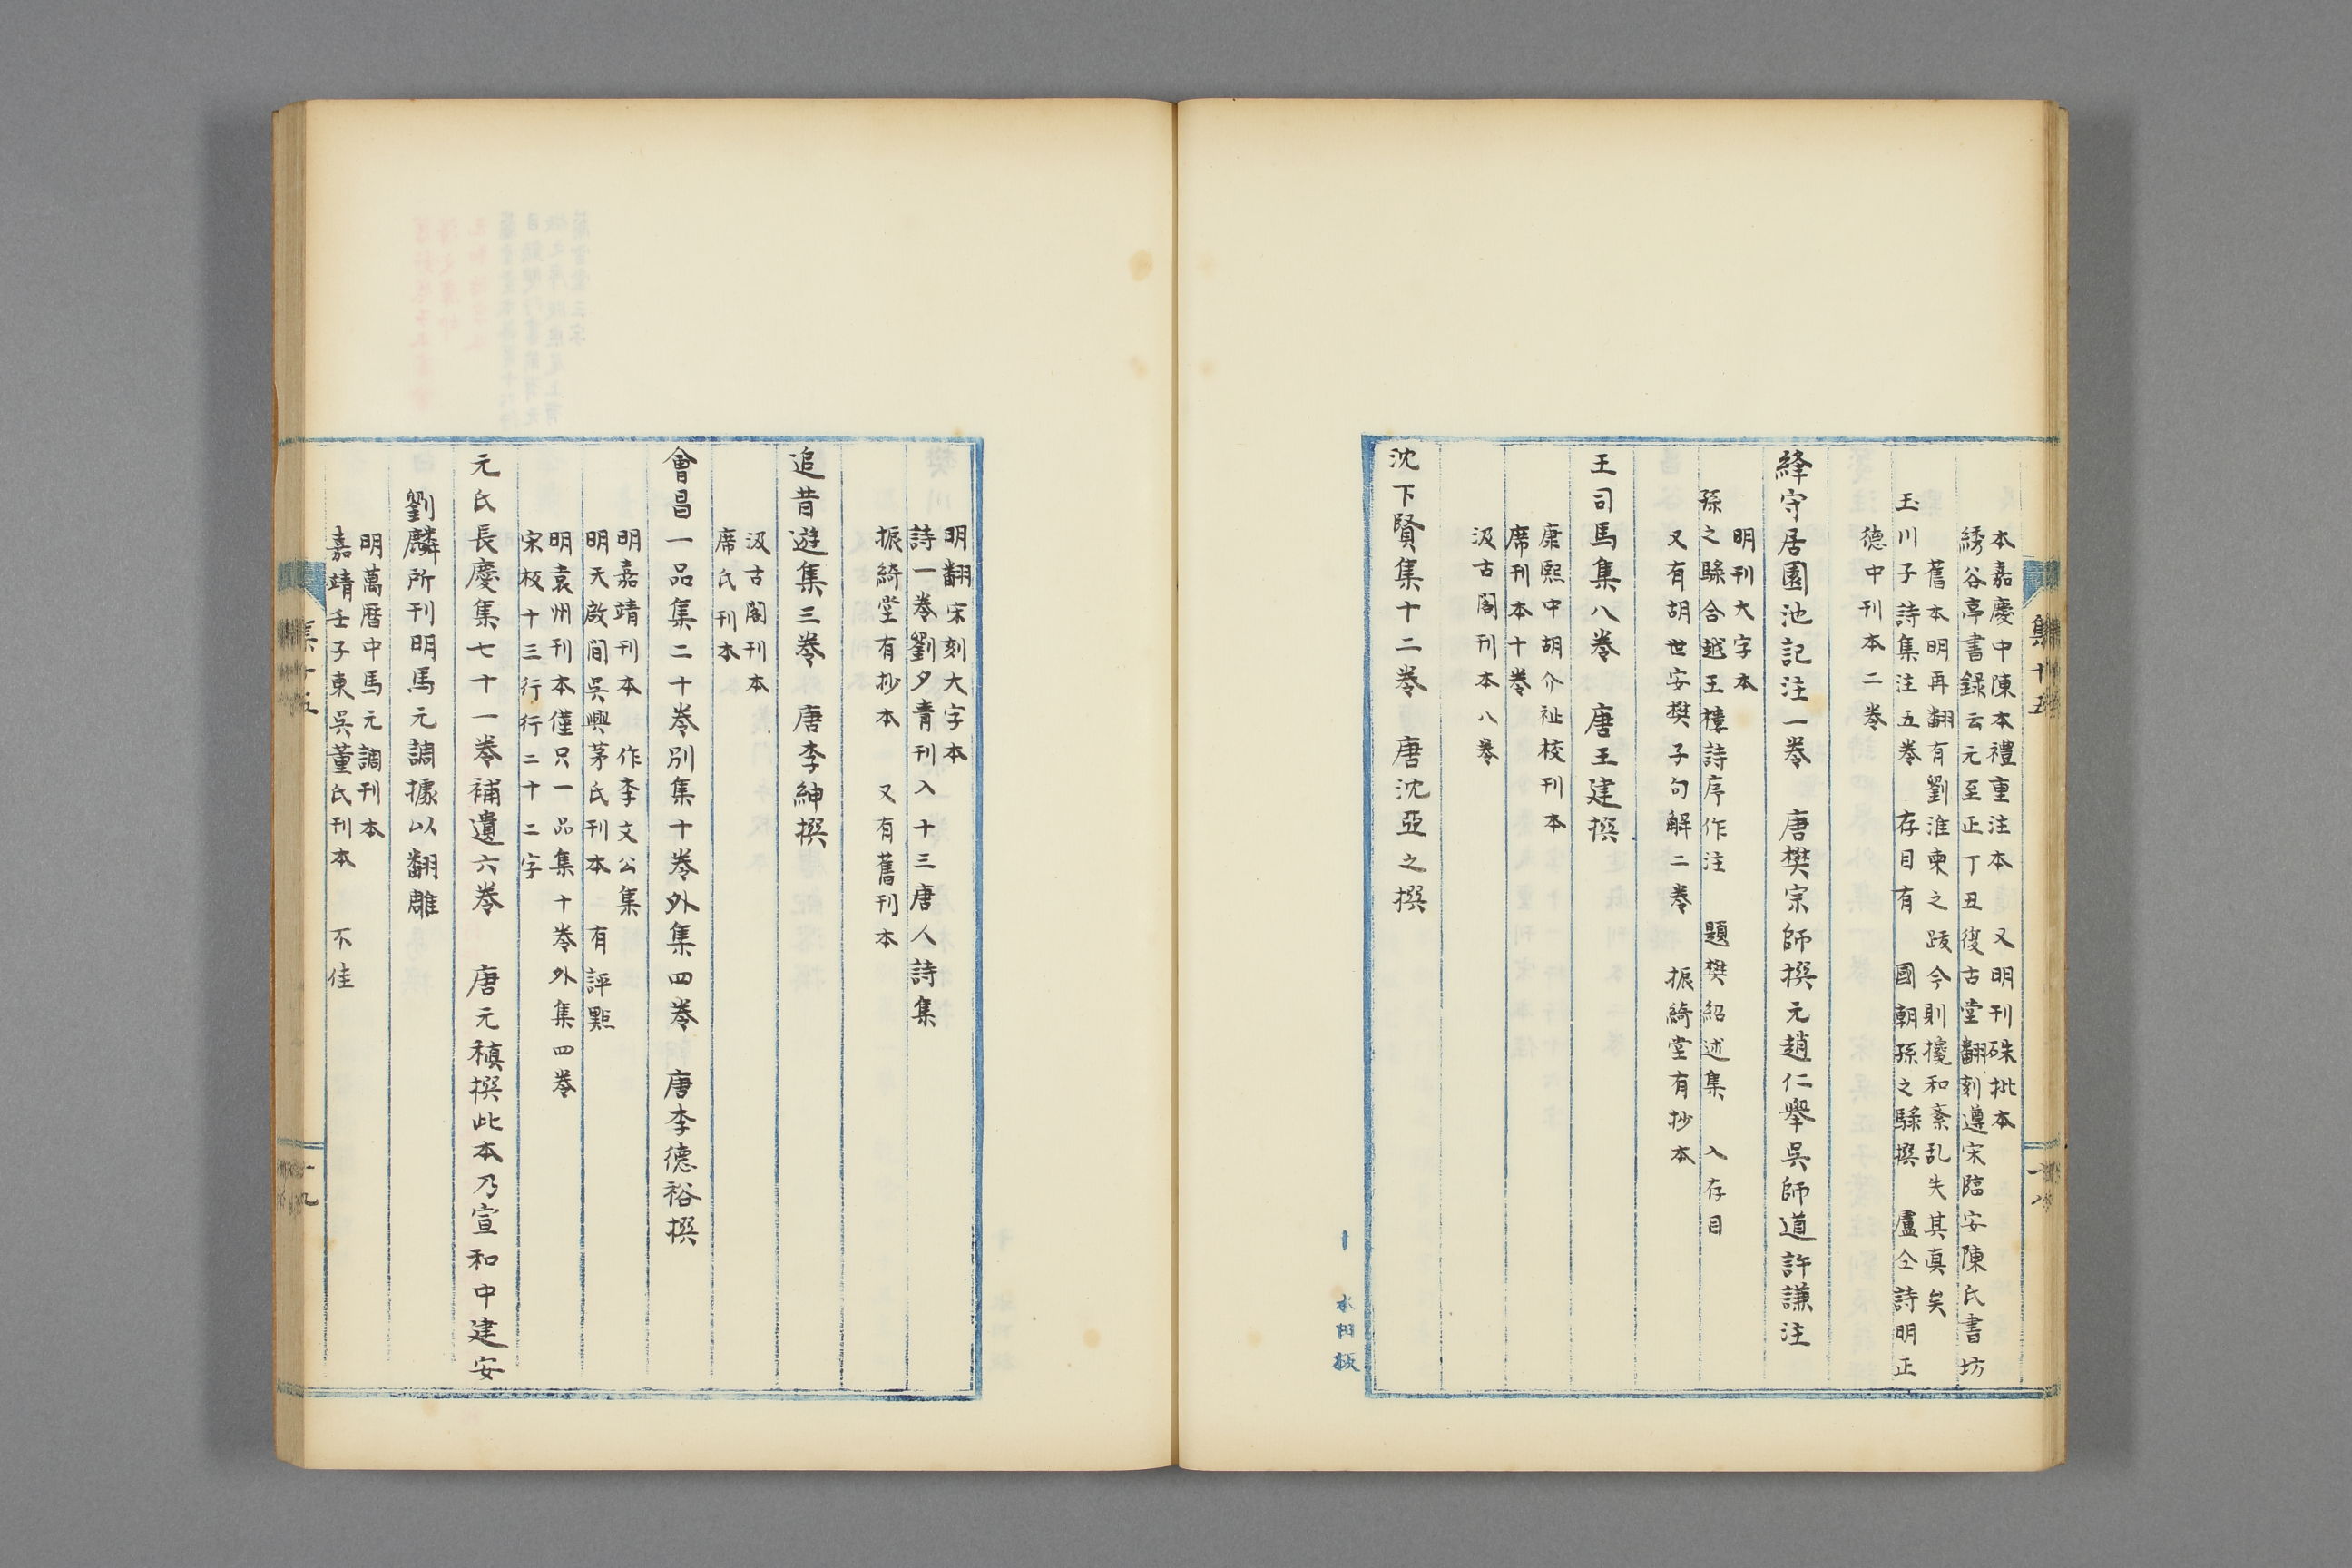 本嘉慶中陳本禮重注本 又明刊硃批本
綉谷亭書録云元至正丁丑復古堂翻刻遵宋臨安陳氏書坊
舊本明再翻有劉淮東之跋今則攙和紊乱失其真矣
玉川子詩集注五卷 存目有 國朝孫之騄撰 盧仝詩明正
德中刊本二卷
絳守居園池記注一卷 唐樊宗師撰元趙仁舉吳師道許謙注
明刊大字本
孫之騄合越王樓詩序作注 題樊紹述集 入存目
又有胡世安樊子句解二卷 振綺堂有抄本
王司馬集八卷 唐王建撰
康熙中胡介祉校刊本
席刊本十卷
汲古閣刊本八卷
沈下賢集十二卷 唐沈亞之撰
集十五
十八
明翻宋刻大字本
詩一卷劉夕青刊入十三唐人詩集
振綺堂有抄本 又有舊刊本
追昔遊集三卷 唐李紳撰
汲古閣刊本
席氏刊本
會昌一品集二十卷別集十卷外集四卷 唐李德裕撰
明嘉靖刊本 作李文公集
明天啟間吳興茅氏刊本 有評點
明袁州刊本僅只一品集十卷外集四卷
宋板十三行行二十二字
元氏長慶集七十一卷補遺六卷 唐元稹撰此本乃宣和中建安
劉麟所刊明馬元調據以翻雕
明萬曆中馬元調刊本
嘉靖壬子東吳董氏刊本 不佳
集十五
十九